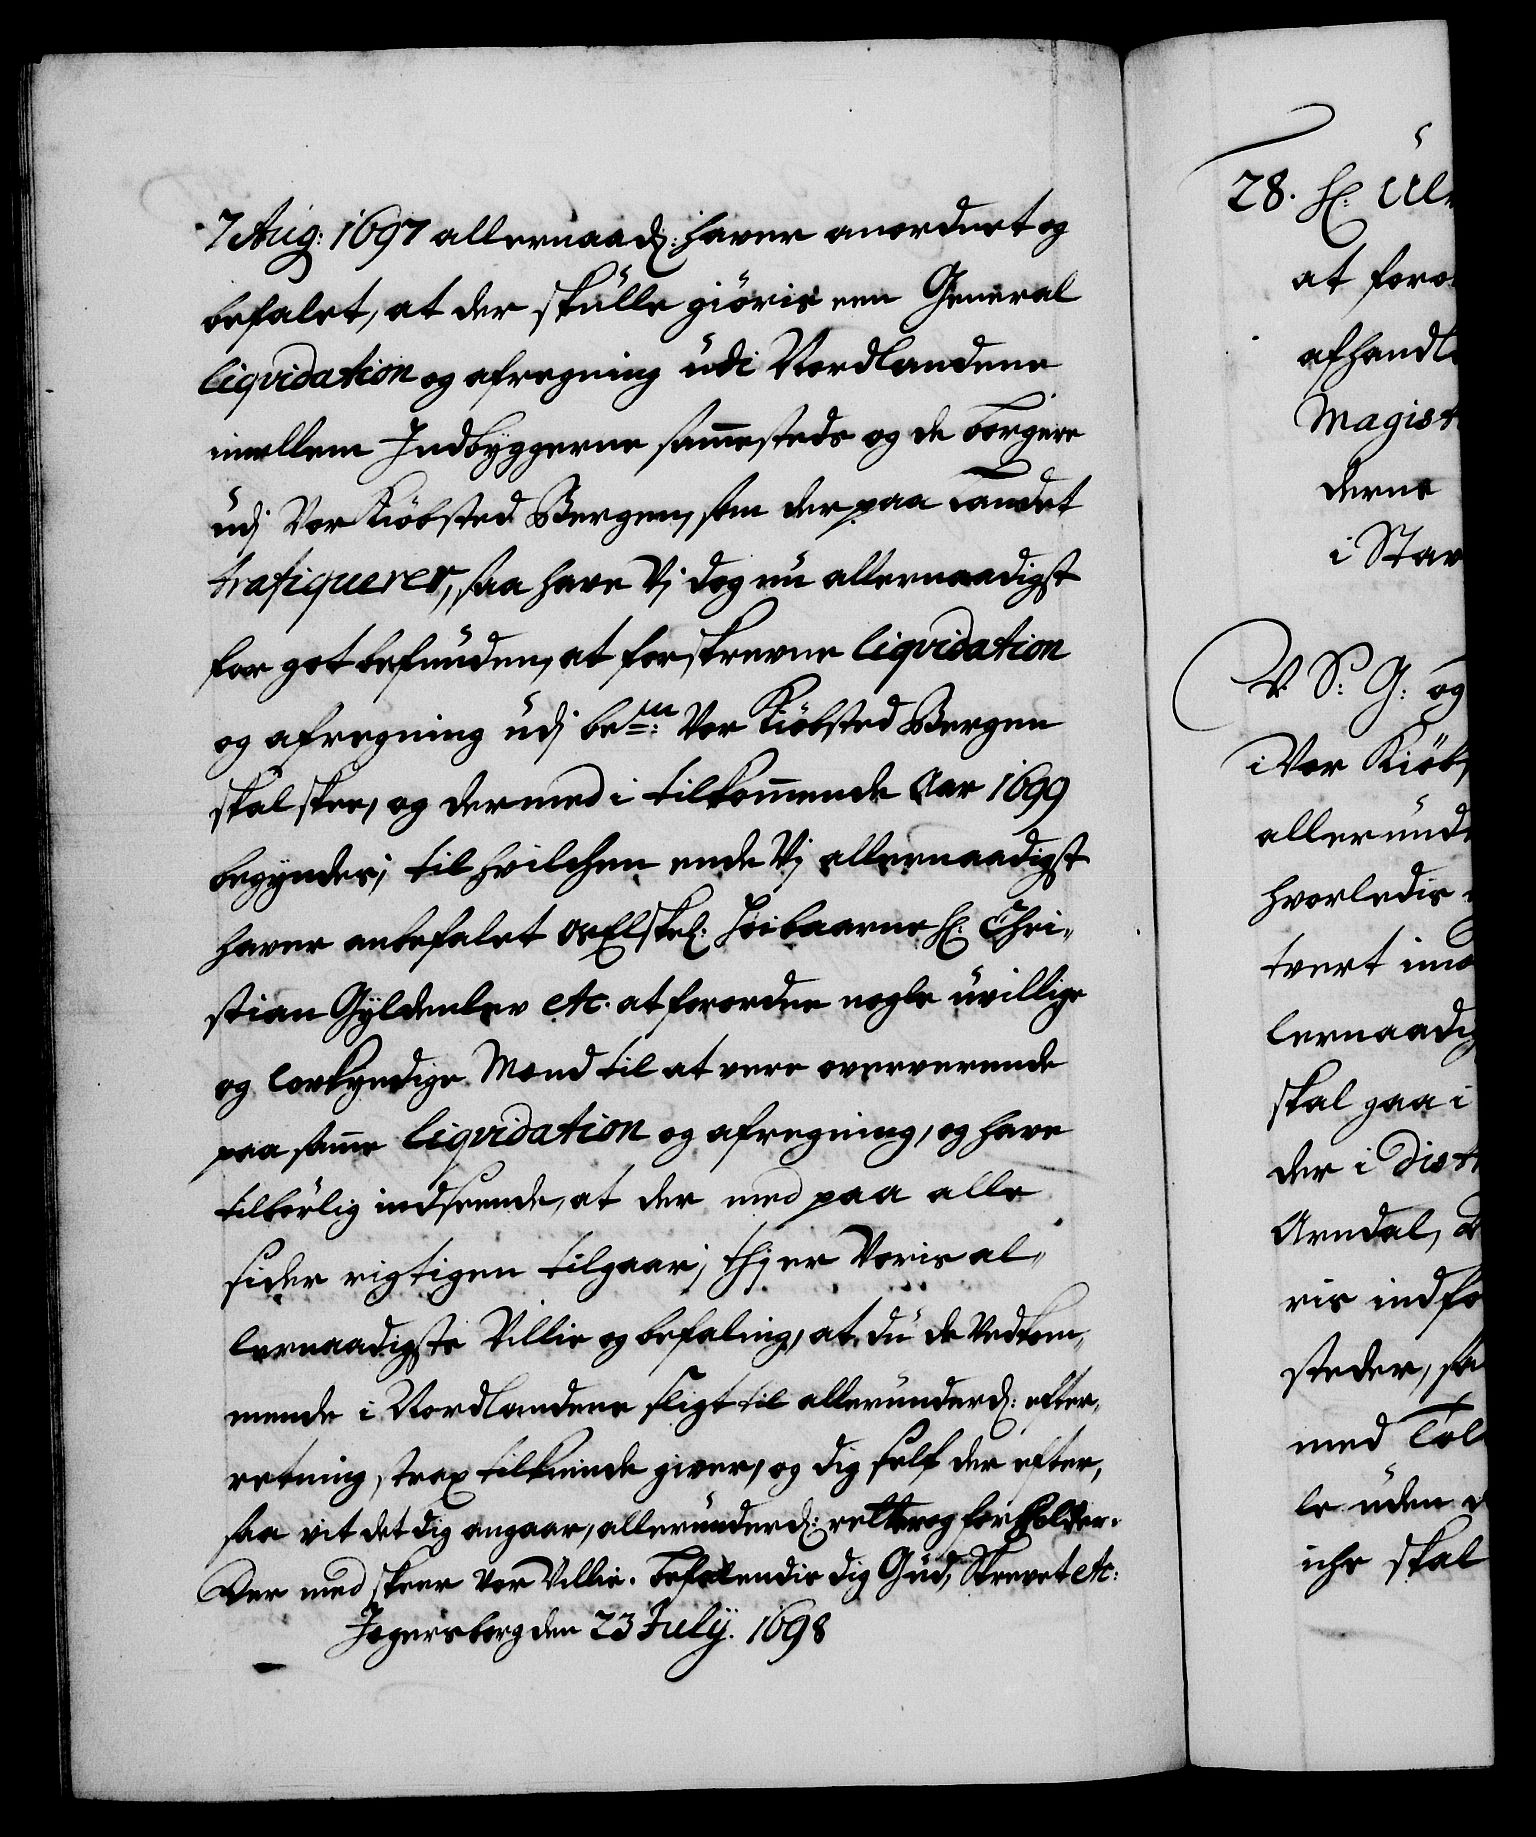 7 Aug: 1697 allernaad: haver anordnet og
befalet, at der skulle giöris een General
liqvidation og afregning udi Nordlandene
imellem Indbyggerne sammesteds og de borgere
udj Vor Kiöbsted Bergen, som der paa Landet
trafiquerer, saa have Vj dog nu allernaadigst
for got befunden, at forskrevne liqvidation
og afregning udj bem.te: Vor Kiöbsted Bergen
skal skee, og dermed i tilkommende Aar 1699
begyndes; til hvilchen ende Vj allernaadigst
haver anbefalet Os Elskel: Höibaarne H: Chri-
stian Gyldenlev etc. at forordne nogle uvillige
og lovkyndige Mænd til at vere oververende
paa samme liqvidation og afregning, og have
tilbörlig indseende, at der med paa alle
sider rigtigen tilgaar; thj er Voris al-
lernaadigste Villie og befaling, at du de Vedkom-
mende i Nordlandene sligt til allerunderd: efter-
retning strax tilkiende giver, og dig self der efter,
saa vit det dig angaar, allerunderd: retter og forholder.
Der med skeer Vor Villie. Befalendis dig Gud, Skrevet etc:
Jegersborg den 23 July. 1698
28. H: Ul
at foro
afhandl
Magist
derne
i Stav
V. S: G: og
i Vor Kiöb
allerund
hvorledis
tvert imo
lernaadig
skal gaa i
der i Dist
Arndal,
ris indfo
steder, sa
med Tol
le uden
iche skal